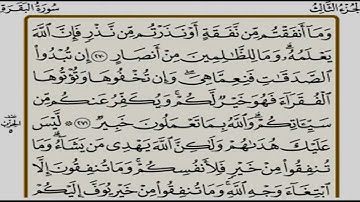 الجزء الثالث
سورة البقرة
وَمَا أَنفَقْتُم مِّن نَّفَقَةٍ أَوْ نَذَرْتُم مِّن نَّذْرٍ فَإِنَّ اللَّهَ
يَعْلَمُهُ ۗ وَمَا لِلظَّالِمِينَ مِنْ أَنصَارٍ ٢٧٠ إِن تُبْدُوا
الصَّدَقَاتِ فَنِعِمَّا هِيَ ۖ وَإِن تُخْفُوهَا وَتُؤْتُوهَا
الْفُقَرَاءَ فَهُوَ خَيْرٌ لَّكُمْ ۚ وَيُكَفِّرُ عَنكُم مِّن
سَيِّئَاتِكُمْ ۗ وَاللَّهُ بِمَا تَعْمَلُونَ خَبِيرٌ ٢٧١ لَّيْسَ
عَلَيْكَ هُدَاهُمْ وَلَٰكِنَّ اللَّهَ يَهْدِي مَن يَشَاءُ ۗ وَمَا
تُنفِقُوا مِنْ خَيْرٍ فَلِأَنفُسِكُمْ ۚ وَمَا تُنفِقُونَ إِلَّا
ابْتِغَاءَ وَجْهِ اللَّهِ ۚ وَمَا تُنفِقُوا مِنْ خَيْرٍ يُوَفَّ إِلَيْكُمْ
الحزب
٥